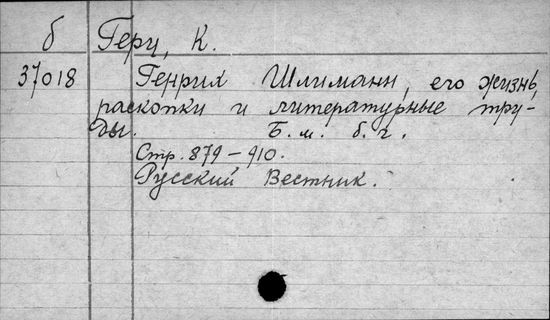 б Герц, К.
37018 Генрих Шлиманн, его жизнь,
раскопки и литературные тру-
ды. Б. м. б. г.
Стр. 879-910.
Русский Вестник.